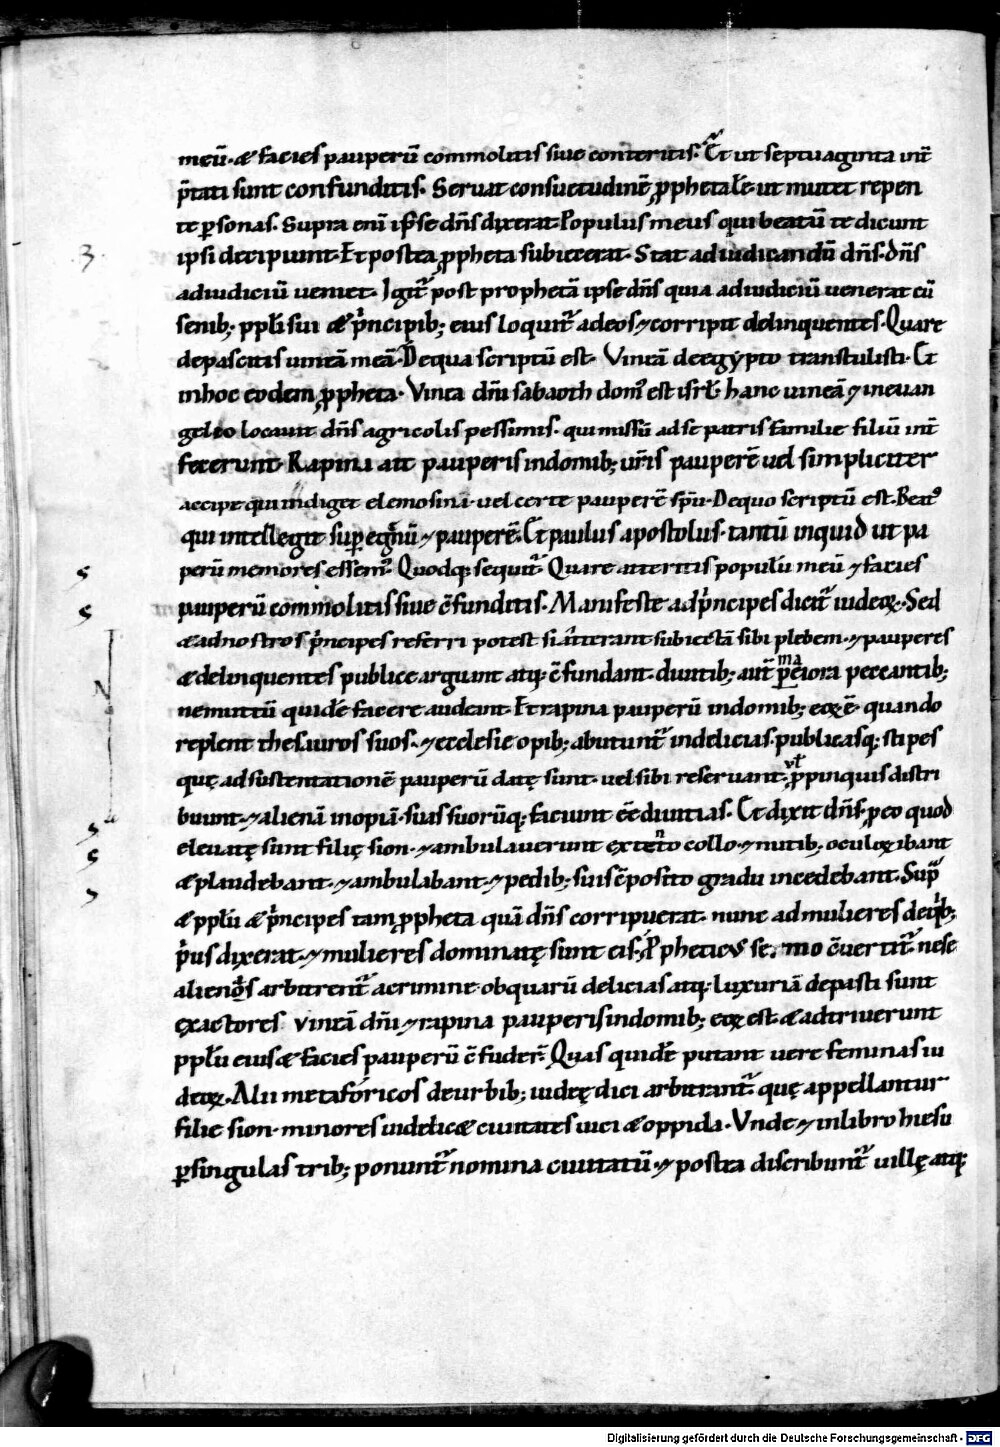 meū· & facies pauperū commolitis siue conteritis· Et ut septuaginta int̄
p̄tati sunt confunditis· Seruat consuetudinē ꝓphetalē· ut mutet repen
te ꝑsonas· Supra enī ipse dn̄s dixerat· Populus meus qui beatū te dicunt
ipsi decipiunt· Et postea ꝓpheta subiecerat· Stat ad iudicandū dn̄s· dn̄s
ad iudiciū ueniet· Igit᷑ post prophetā ipse dn̄s quia ad iudiciū uenerat cū
senib; ppl̄i sui & p̄ncipib; eius loquit᷑ ad eos ⁊ corripit delinquentes· Quare
depascitis uineā meā· De qua scriptū est· Vineā de egypto transtulisti· Et
in hoc eodem ꝓpheta· Vinea dn̄i sabaoth dom᷒ est isrl̄· hanc uineā ⁊ in euan
gelio locauit dn̄s agricolis pessimis· qui missū ad se patris familie filiū int̄
fecerunt· Rapina ait pauperis in domib; ur̄is pauperē uel simpliciter
accipe qui indiget elemosina· uel certe pauperē sp̄u· De quo scriptū est· Beat᷒
qui intellegit sup egenū ⁊ pauperē· Et paulus apostolus· tantū inquid ut pa
perū memores essem᷒· Quodq; sequit᷑· Quare atteritis populū meū ⁊ facies
pauperū commolitis siue c̄funditis· Manifeste ad p̄ncipes dicit᷑ iudeoꝝ· Sed
& ad nostros p̄ncipes referri potest si atterant subiectā sibi plebem· ⁊ pauperes
& delinquentes publice arguant atq; c̄fundant· diuitib; aut̄ ma peiora peccantib;
ne nuttū quidē facere audeant· Et rapina pauperū in domib; eoꝝ ē· quando
replent thesauros suos· ⁊ ecclesie opib; abutunt᷑ in delicias· publicasq; stipes
quę ad sustentationē pauperū datę sunt· uel sibi reseruant· ul̄ ꝓpinquis distri
buunt· ⁊ alienā inopiā· suas suorūq; faciunt eē diuitias· Et dixit dn̄s· ꝓ eo quod
eleuatę sunt filię sion· ⁊ ambulauerunt extento collo· ⁊ nutib; oculoꝝ ibant
& plaudebant· ⁊ ambulabant· ⁊ pedib; suis c̄posito gradu incedebant· Sup̄
& ppl̄ū & p̄ncipes tam ꝓpheta quā dn̄s corripuerat· nunc ad mulieres de quib;
p̄us dixerat· ⁊ mulieres dominatę sunt eis· ꝓpheticus sermo c̄uertit᷑· ne se
alienos arbitrent᷑ a crimine· ob quarū delicias atq; luxuriā depasti sunt
exactores vineā dn̄i ⁊ rapina pauperis in domib; eoꝝ est· & adtriuerunt
ppl̄ū eius & facies pauperū c̄fuder̄· Quas quidē putant uere feminas iu
deoꝝ· Alii metaforicos de urbib; iudeę dici arbitrant᷑· quę appellantur
filie sion· minores uidelic& ciuitates uici & oppida· Vnde ⁊ in libro hiesu
ꝑ singulas trib; ponunt᷑ nomina ciuitatū· ⁊ postea discribunt᷑ uillę atq;
Digitalisierung gefördert durch die Deutsche Forschungsgemeinschaft - DFG